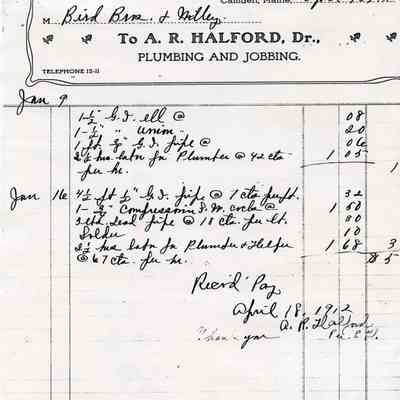 Camden, Maine,
M Bird Bros. & Willey.
To A. R. HALFORD, Dr.,
PLUMBING AND JOBBING.
TELEPHONE 12-11
Jan 9
1-½" G.I. ell @ 08
1-½" " Union. 20
1 ft ½" G.I. pipe @ 06
2½ hrs labor for Plumber @ 42 cts 1 05
per hr. 1
Jan 16 4½ ft ½" G.I. pipe @ 7 cts per ft. 32
Compression S.W. cock @ 1 50
lead pipe @ 10 cts per lb. 30
Solder 10
2½ hrs labor for Plumber & Helper 1 68 3
@ 67 cts. per hr. $ 5
Rec'd Pay
April 18, 1912
A. R. Halford
Per